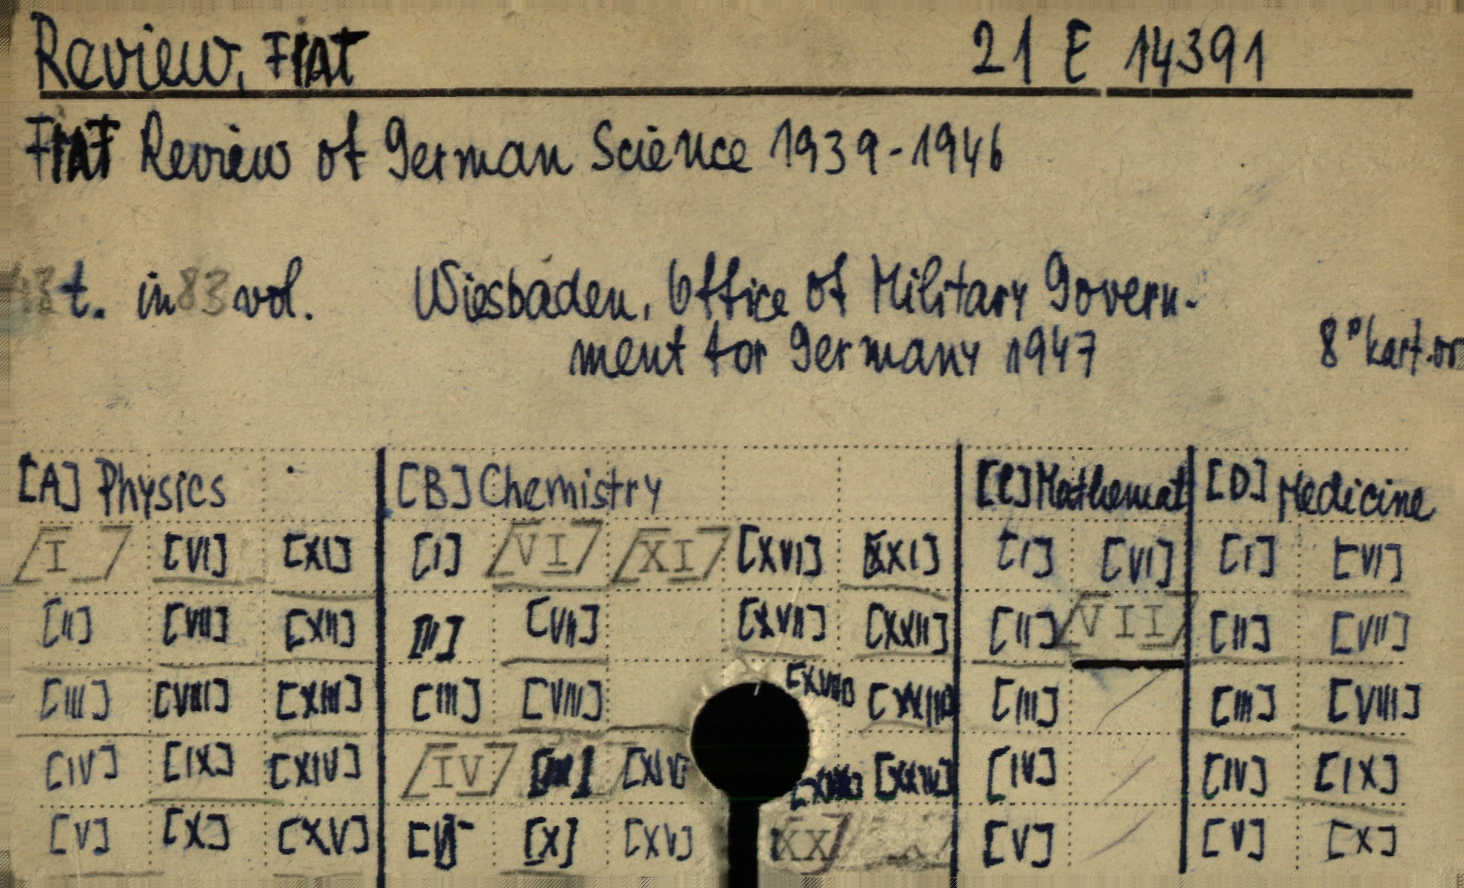 Review, FIAT 21 E 14391
FIAT Review of German Science 1939-1946
t. in 83 vol. Wiesbaden, Office of Military Govern-
ment for Germany 1947 8° kart.
[A] Physics [B] Chemistry [C] Mathemat [D] Medicine
[I] [VI] [XI] [I] [VI] [XI] [XVI] [XXI] [I] [VI] [I] [VI]
[II] [VII] [XII] [II] [VII] [XVII] [XXII] [II] [VII] [II] [VII]
[III] [VIII] [XIII] [III] [VIII] [XVIII] [XXIII] [III] [III] [VIII]
[IV] [IX] [XIV] [IV] [IX] [XIV] [XIX] [XXIV] [IV] [IV] [IX]
[V] [X] [XV] [V] [X] [XV] [XX] [V] [V] [X]